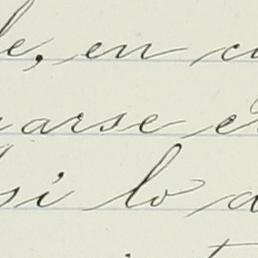 le, en c
arse e
si lo a